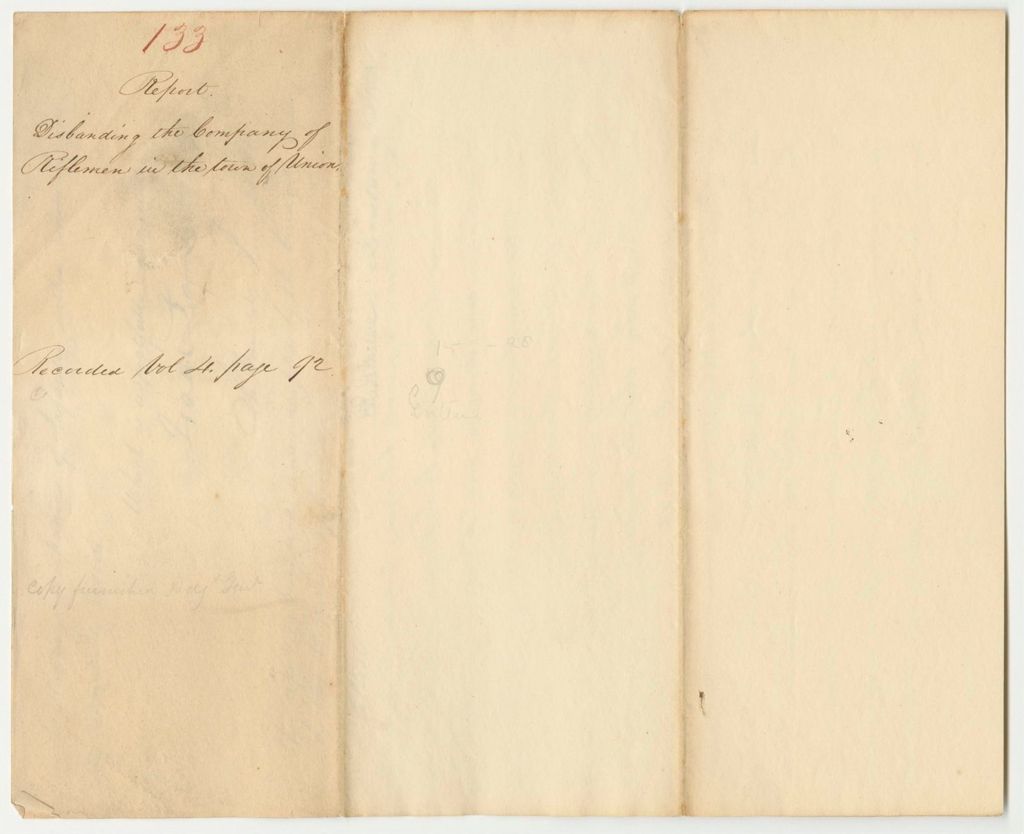 133
Report.
Disbanding the Company of
Riflemen in the town of Union.
Recorded Vol 4. page 92.
Copy furnished Adj. Genl.
9